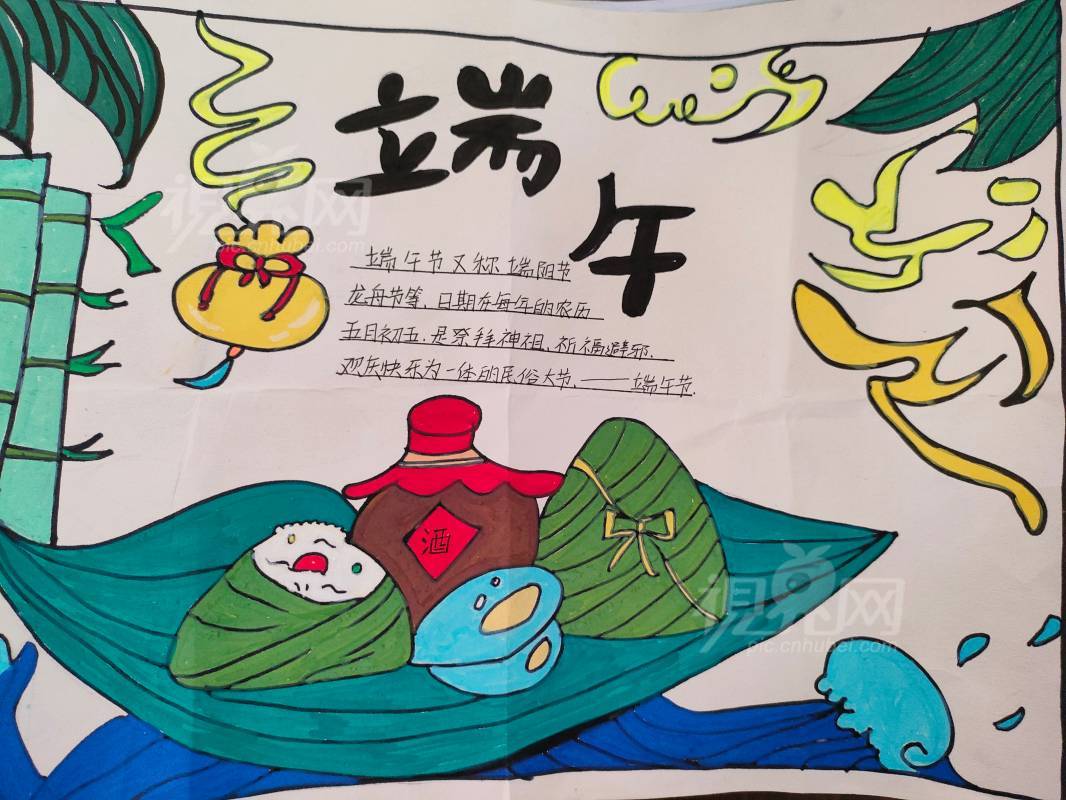 端午
端午节又称端阳节
龙舟节等、日期在每年的农历
五月初五、是祭拜神祖、祈福辟邪、
欢庆快乐为一体的民俗大节、——端午节.
酒
視界网
pic.cnhubei.com
視界网
pic.cnhubei.com